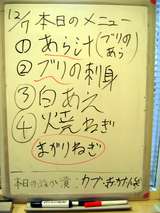 12/17 本日のメニュー
① あら汁(ブリのあら)
② ブリの刺身
③ 白あえ
④ 焼ねぎ
まがりねぎ
カブ